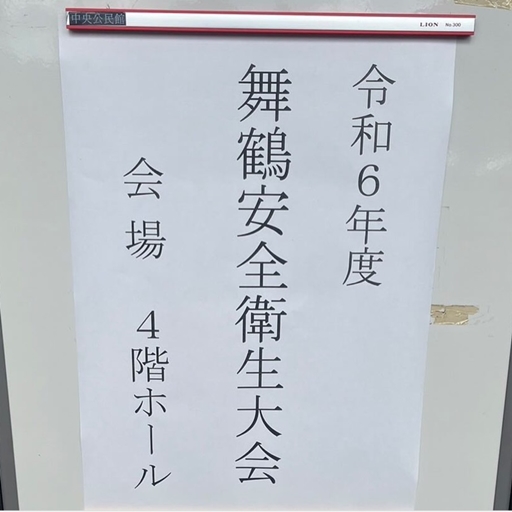 中央公民館
LION No.300
令和6年度
舞鶴安全衛生大会
会場 4階ホール